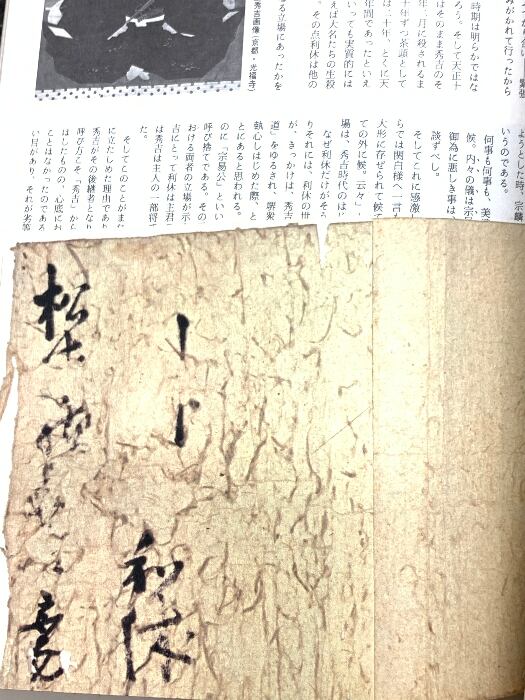 みがかれて行ったから
時期は明らかではな
ろう。そして天正十
はそのまま秀吉のそ
年二月に殺されるま
十年ずつ茶頭として
は、十年、とくに天
年間であったといえ
いっても実質的には
えば大名たちの生殺
、その点利休は他の
る立場にあったかを
秀吉画像(京都・光福寺)
ようとした時、宗麟
いうのである。
何事も何事も、美
候。内々の儀は宗
御為に悪しき事は、
談ずべし。
そしてこれに感激し
らでは関白様へ一言
大形に存ぜられて候て
ての外に候。云々」
場は、秀吉時代のはじ
なぜ利休だけがそう
りそれには、利休の世
が、きっかけは、秀吉
道」をゆるされ、堺衆
熱心しはじめた際、と
とにあると思われる。
のに「宗易公」といい
呼び捨てである。その
おける両者の立場が示
吉にとって利休は主君
は秀吉は主人の一部将で
た。
そしてこのことがまた
に立たしめた理由であり
秀吉がその後継者となり
呼び方こそ「秀吉」から
はしたものの、心底にお
ことはなかったのである
い目があり、それが劣等
利休
松